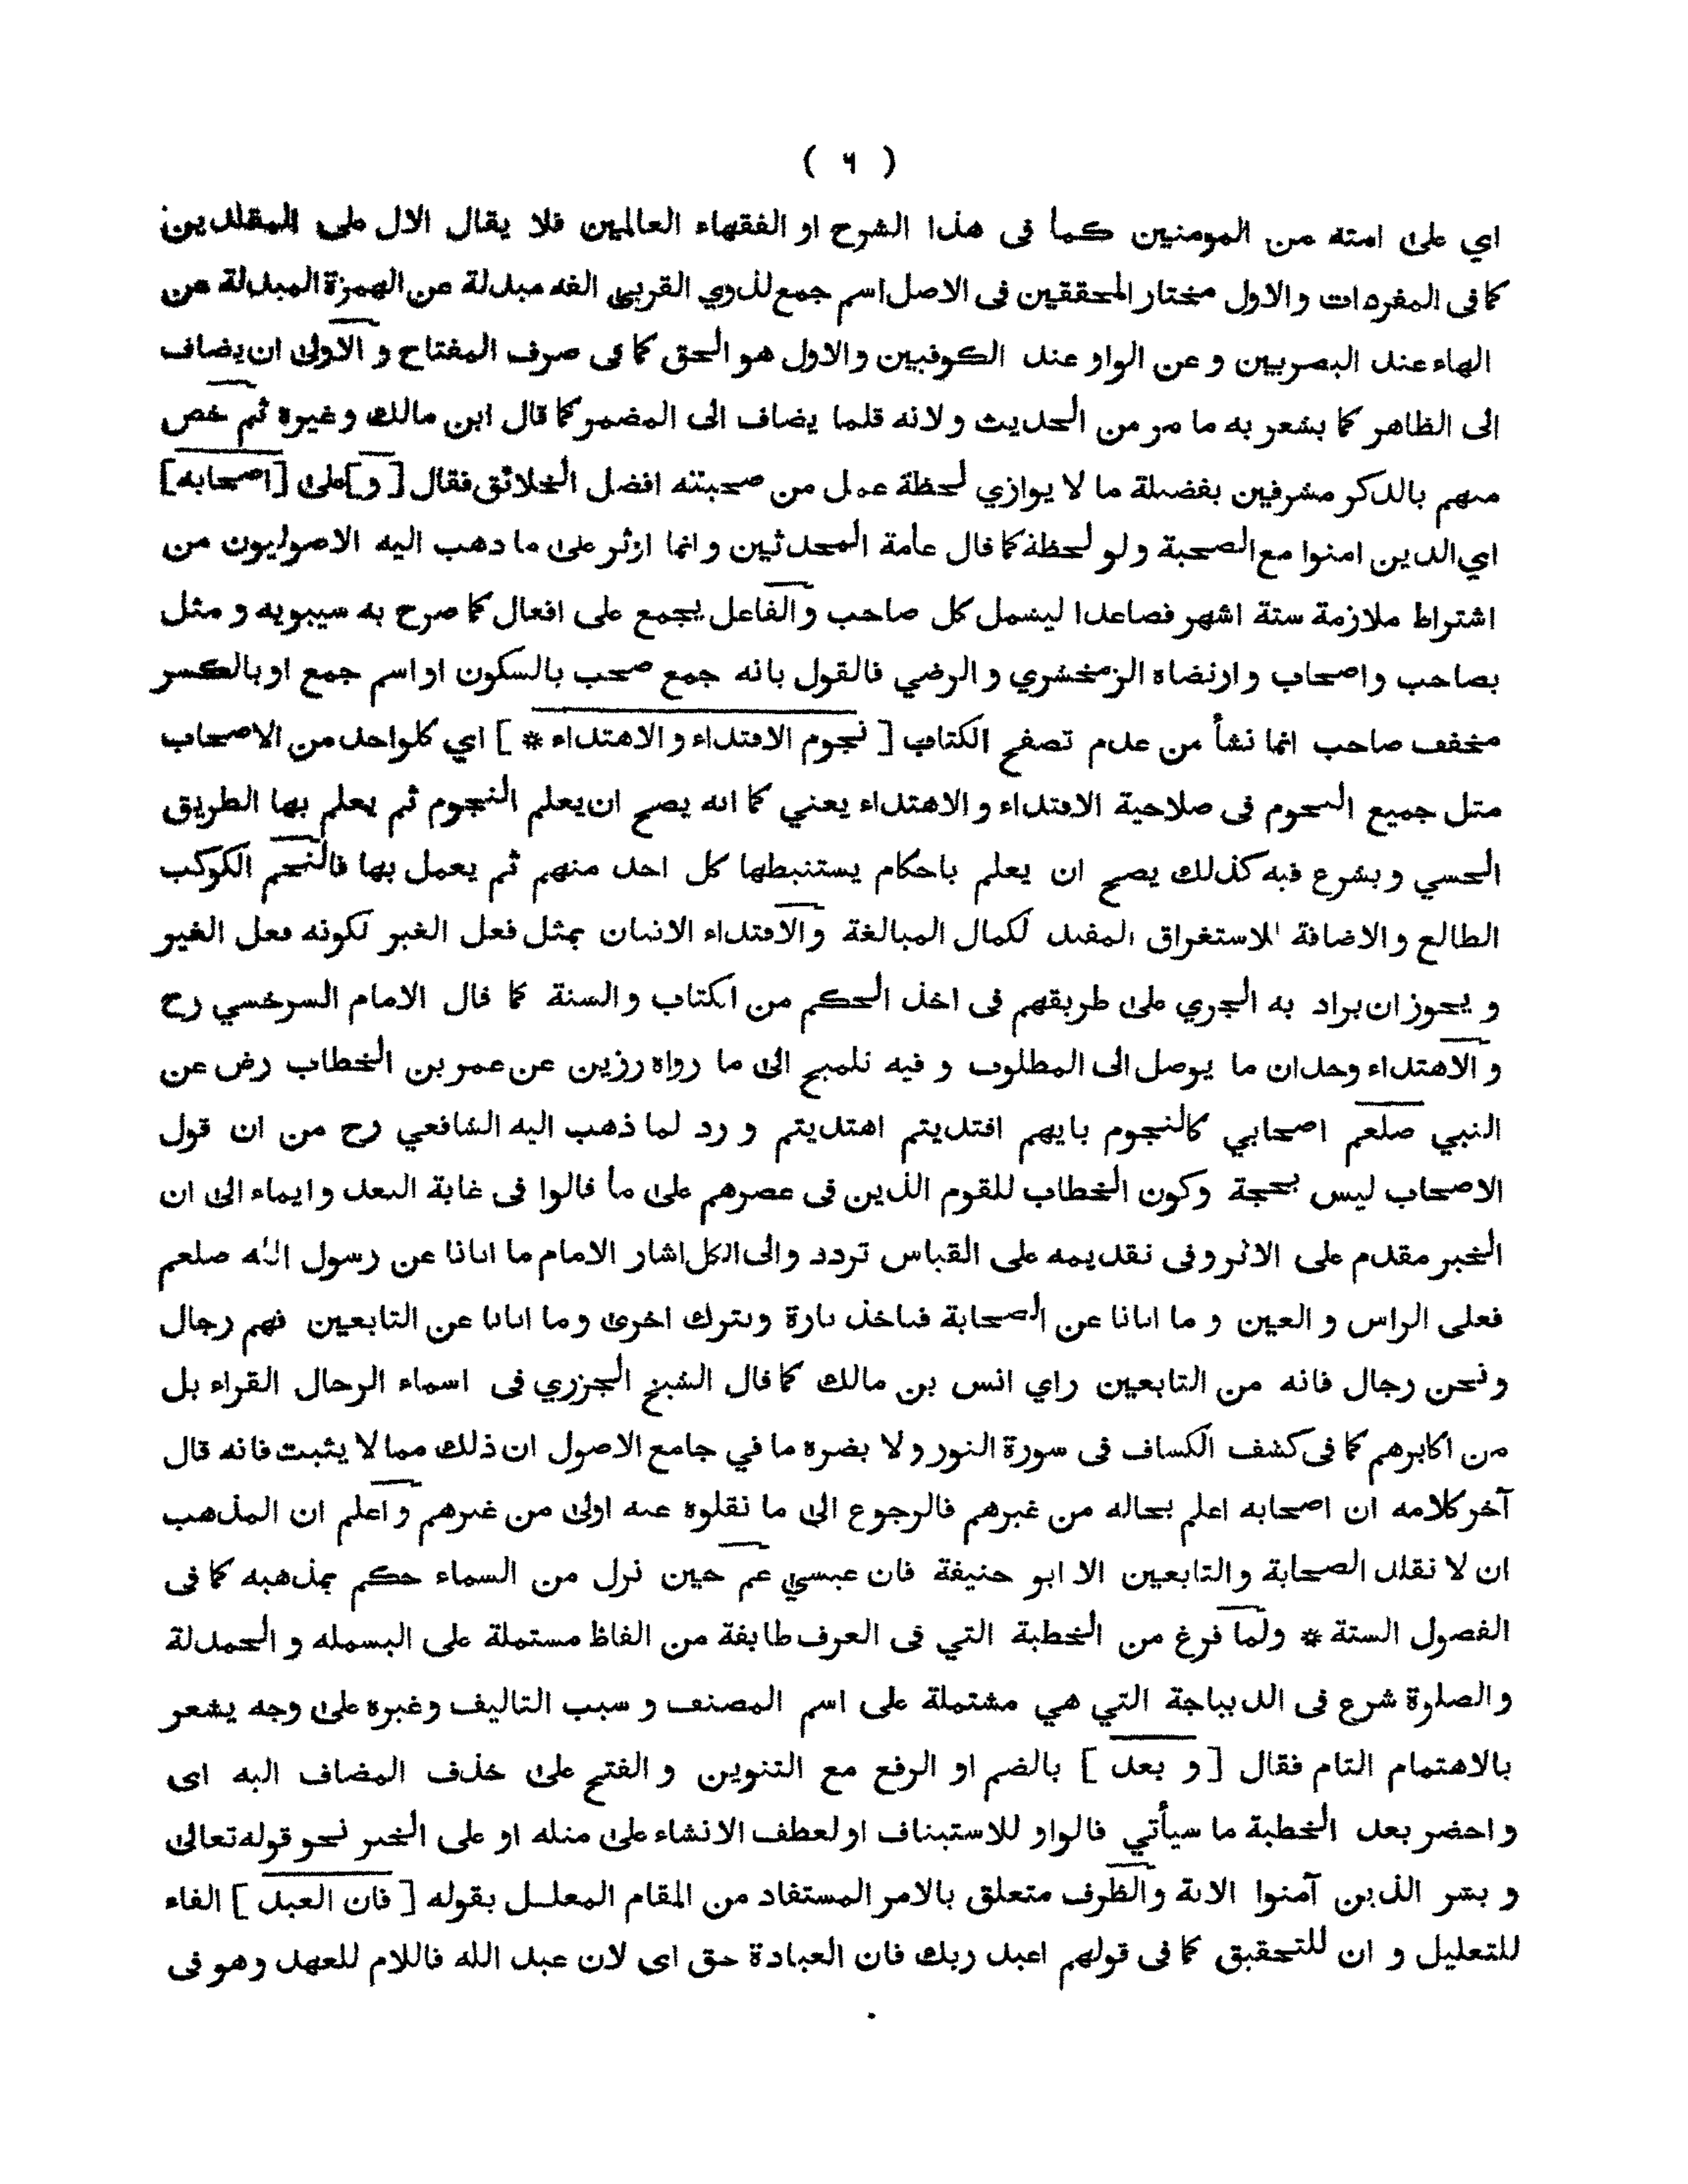 ( ٦ )
اي على امته من المومنين كما فى هذا الشرح او الفقهاء العالمين فلا يقال الال على المقلدين
كما فى المفردات والاول مختار المحققين فى الاصل اسم جمع لذوي القربى الفه مبدلة عن الهمزة المبدلة عن
الهاء عند البصريين و عن الواو عند الكوفيين والاول هو الحق كما فى صرف المفتاح و الاولى ان يضاف
الى الظاهر كما يشعر به ما مر من الحديث و لانه قلما يضاف الى المضمر كما قال ابن مالك و غيرة ثم خص
منهم بالذكر مشرفين بفضيلة ما لا يوازي لحظة عمل من صحبته افضل الخلائق فقال [ و ] على [ اصحابه ]
اي الذين امنوا مع الصحبة و لو لحظة كما قال عامة المحدثين و انما اوثر على ما ذهب اليه الاصوليون من
اشتراط ملازمة ستة اشهر فصاعدا ليشمل كل صاحب و الفاعل يجمع على افعال كما صرح به سيبويه و مثل
بصاحب و اصحاب و ارتضاه الزمخشري و الرضي فالقول بانه جمع صحب بالسكون او اسم جمع او بالكسر
مخفف صاحب انما نشأ من عدم تصفح الكتاب [ نجوم الاقتداء و الاهتداء * ] اي كلواحد من الاصحاب
مثل جميع النجوم فى صلاحية الاقتداء و الاهتداء يعني كما انه يصح ان يعلم النجوم ثم يعلم بها الطريق
الحسي و يشرع فيه كذلك يصح ان يعلم باحكام يستنبطها كل احد منهم ثم يعمل بها فالنجم الكوكب
الطالع و الاضافة للاستغراق المفيد لكمال المبالغة والاقتداء الاتيان بمثل فعل الغير لكونه فعل الغير
و يجوز ان يراد به الجري على طريقهم فى اخذ الحكم من الكتاب و السنة كما قال الامام السرخسي رح
و الاهتداء وجدان ما يوصل الى المطلوب و فيه تلميح الى ما رواه رزين عن عمر بن الخطاب رض عن
النبي صلعم اصحابي كالنجوم بايهم اقتديتم اهتديتم و رد لما ذهب اليه الشافعي رح من ان قول
الاصحاب ليس بحجة وكون الخطاب للقوم الذين فى عصرهم على ما قالوا فى غاية البعد و ايماء الى ان
الخبر مقدم على الاثر و فى تقديمه على القياس تردد والى الكل اشار الامام ما اتانا عن رسول الله صلعم
فعلى الراس و العين و ما اتانا عن الصحابة فناخذ تارة ونترك اخرى و ما اتانا عن التابعين فهم رجال
و نحن رجال فانه من التابعين راي انس بن مالك كما قال الشيخ الجزري فى اسماء الرجال القراء بل
من اكابرهم كما فى كشف الكشاف فى سورة النور و لا يضره ما في جامع الاصول ان ذلك مما لا يثبت فانه قال
آخر كلامه ان اصحابه اعلم بحاله من غيرهم فالرجوع الى ما نقلوة عنه اولى من غيرهم و اعلم ان المذهب
ان لا نقلد الصحابة و التابعين الا ابو حنيفة فان عيسى عم حين نزل من السماء حكم بمذهبه كما فى
الفصول الستة * ولما فرغ من الخطبة التي فى العرف طايفة من الفاظ مشتملة على البسمله و الحمدلة
والصلوة شرع فى الديباجة التي هي مشتملة على اسم المصنف و سبب التاليف وغيره على وجه يشعر
بالاهتمام التام فقال [ و بعد ] بالضم او الرفع مع التنوين و الفتح على حذف المضاف اليه اى
و احضر بعد الخطبة ما سيأتي فالواو للاستيناف او لعطف الانشاء على مثله او على الخبر نحو قوله تعالى
و بشر الذين آمنوا الاية و الظرف متعلق بالامر المستفاد من المقام المعلل بقوله [ فان العبد ] الفاء
للتعليل و ان للتحقيق كما فى قولهم اعبد ربك فان العبادة حق اى لان عبد الله فاللام للعهد و هو فى